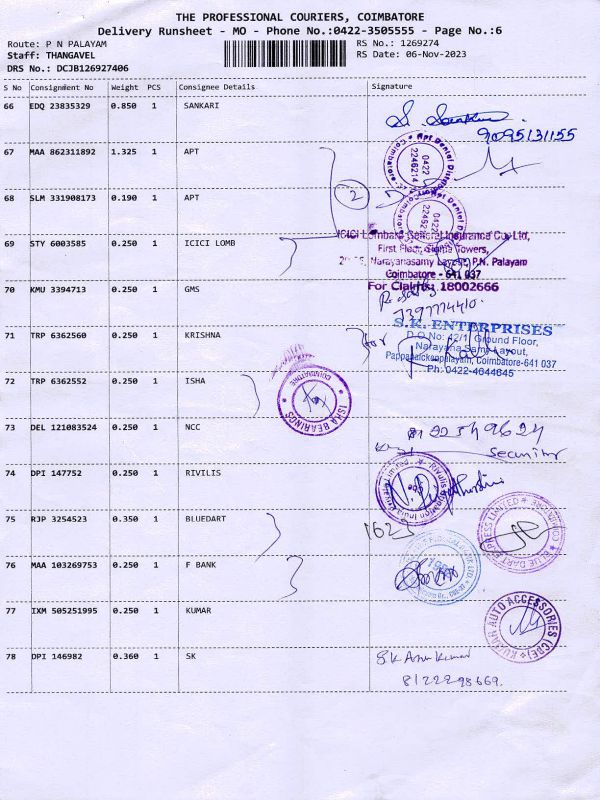 THE PROFESSIONAL COURIERS, COIMBATORE
Delivery Runsheet - MO - Phone No.:0422-3505555 - Page No.:6
Route: P N PALAYAM RS No.: 1269274
Staff: THANGAVEL RS Date: 06-Nov-2023
DRS No.: DCJB126927406
S No Consignment No Weight PCS Consignee Details Signature
66 EDQ 23835329 0.850 1 SANKARI
9095131155
67 MAA 862311892 1.325 1 APT
Apt Dental
Coimbatore
0422
2246214
68 SLM 331908173 0.190 1 APT
2
69 STY 6003585 0.250 1 ICICI LOMB
ICICI Lombard General Insurance Co. Ltd,
First Floor, Towers,
Narayanasamy Layout, P.N. Palayam
Coimbatore - 641 037
For Claims: 18002666
70 KMU 3394713 0.250 1 GMS
71 TRP 6362560 0.250 1 KRISHNA
for
S.K. ENTERPRISES
D.O No: 42/1, Ground Floor,
Narayana Samy Layout,
Pappanaickenpalayam, Coimbatore-641 037
Ph: 0422-4644645
72 TRP 6362552 0.250 1 ISHA
ISHA BEARINGS
COIMBATORE
73 DEL 121083524 0.250 1 NCC
Security
74 DPI 147752 0.250 1 RIVILIS
Rivulis Irrigation India Private Limited
75 RJP 3254523 0.350 1 BLUEDART
BLUE DART EXPRESS LIMITED
COIMBATORE
76 MAA 103269753 0.250 1 F BANK
77 IXM 505251995 0.250 1 KUMAR
KUMAR AUTO ACCESSORIES (CBE)
78 DPI 146982 0.360 1 SK
SK Arun Kumar
8122298669.